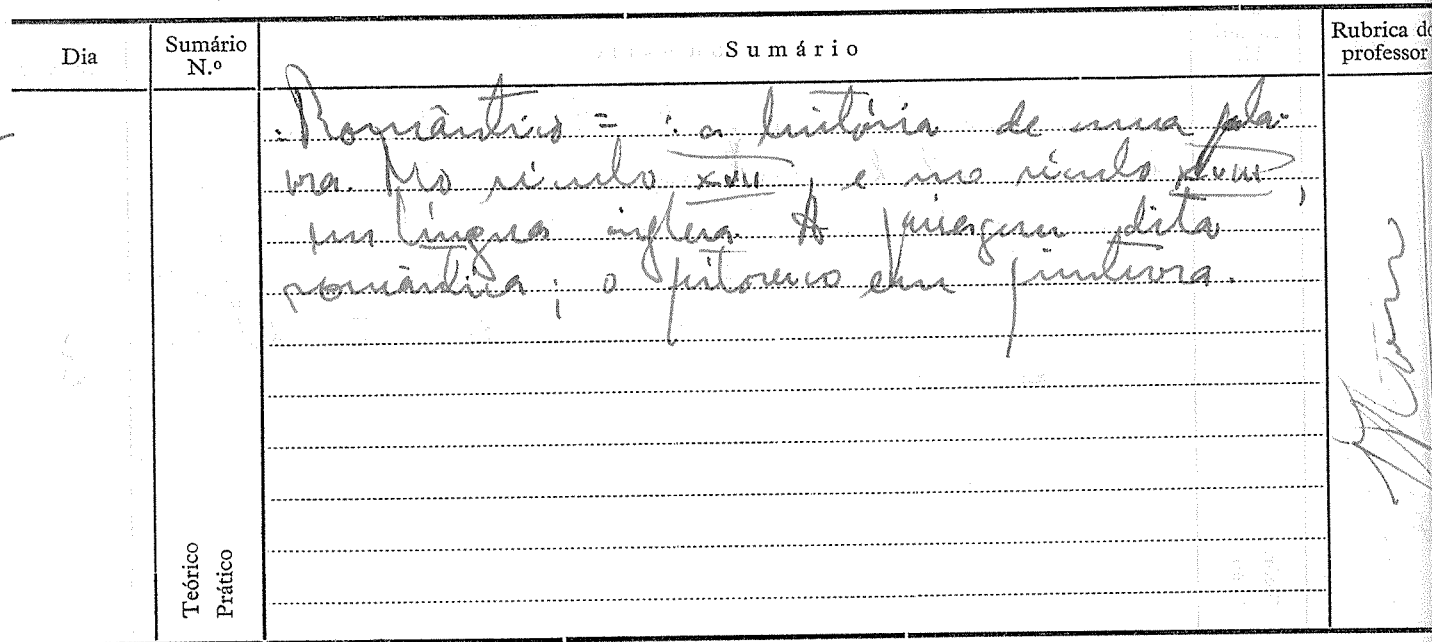 Dia
Sumário
N.º
Sumário
Rubrica do
professor
"Romântico": a história de uma pala-
vra. No século XVII, e no século XVIII,
em língua inglesa. A paisagem dita
romântica; o pitoresco em pintura.
Teórico
Prático